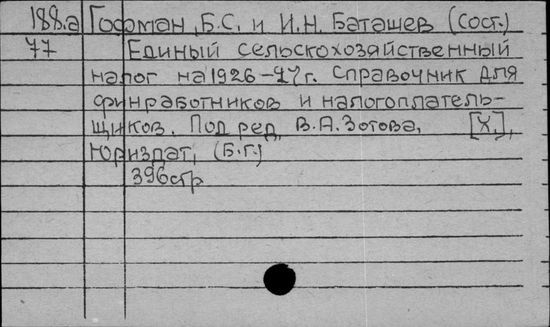 188.а Гофман, Б.С. и И.Н. Баташев (сост.)
77 Единый сельскохозяйственный
налог на 1926-27 г. Справочник для
финработников и налогоплатель-
щиков. Под ред. В.А.Зотова. [Х.],
Юриздат, (Б.г.)
396стр